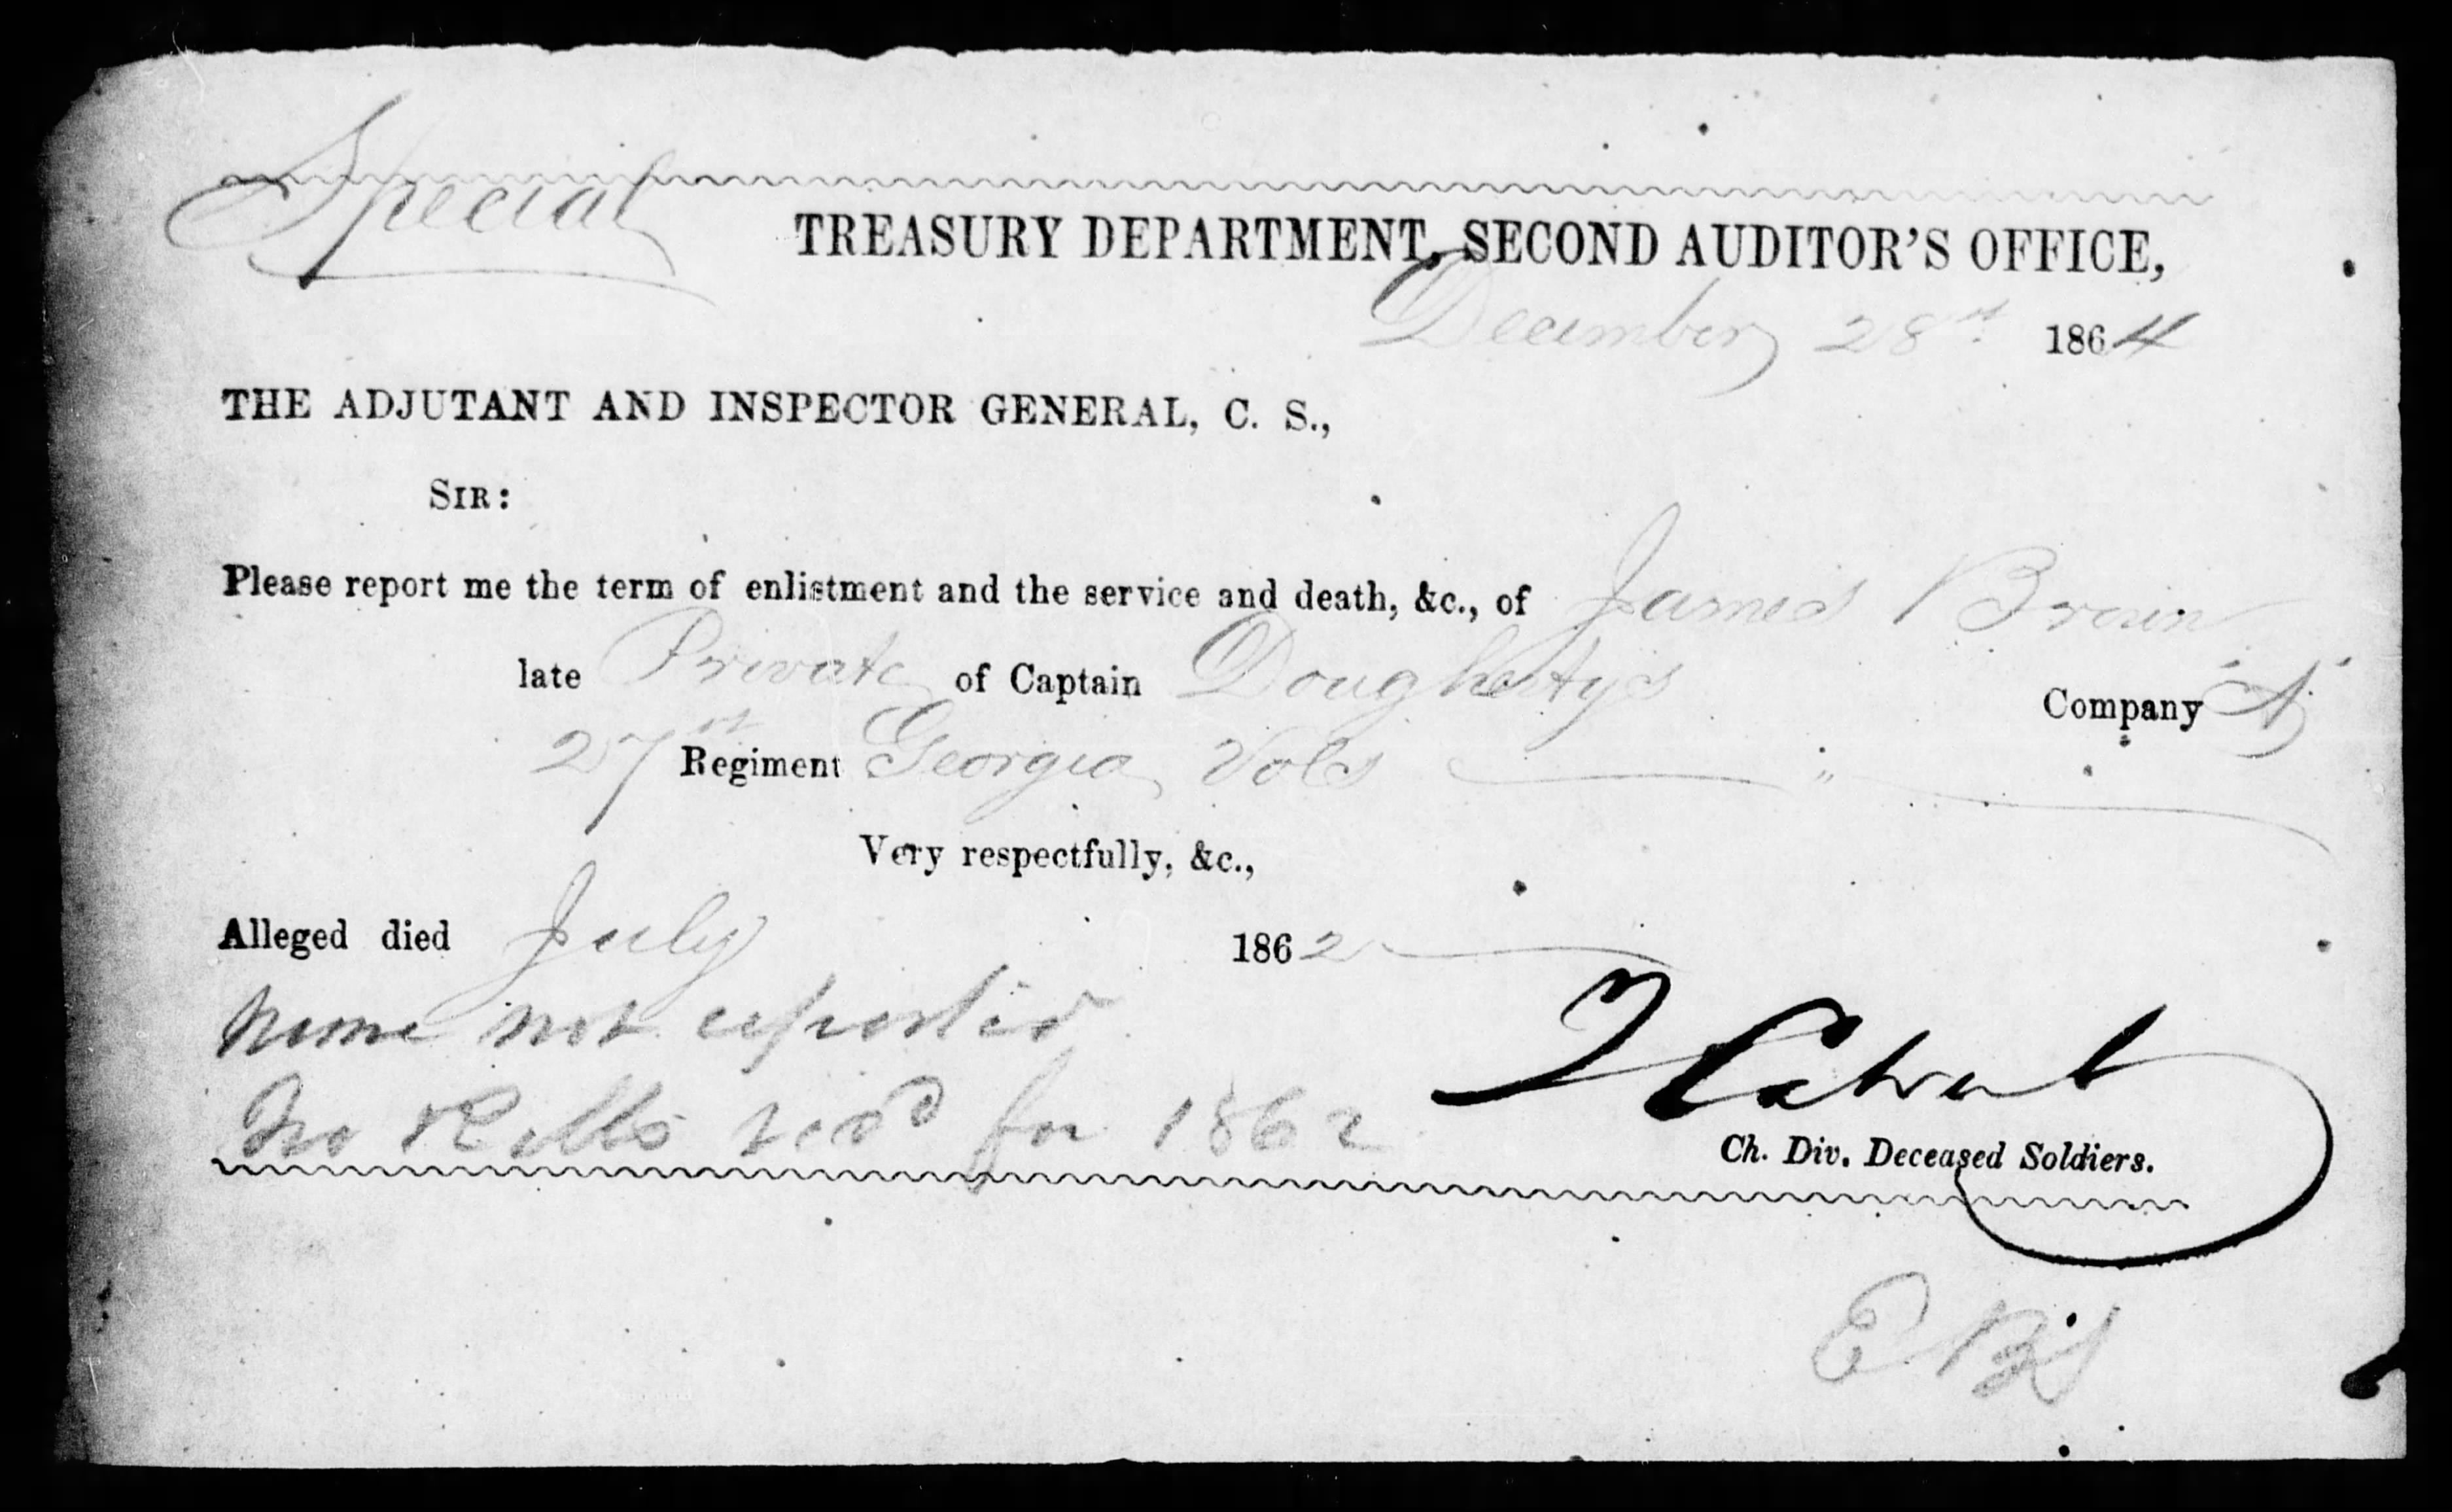 Special
TREASURY DEPARTMENT, SECOND AUDITOR'S OFFICE,
December 28 1864
THE ADJUTANT AND INSPECTOR GENERAL, C. S.,
SIR:
Please report me the term of enlistment and the service and death, &c., of James
late Private of Captain Dougherty's Company "A"
27th Regiment Georgia Vols
Very respectfully, &c.,
Alleged died July 1862
Name not reported
No Rolls recd for 1862
Ch. Div. Deceased Soldiers.